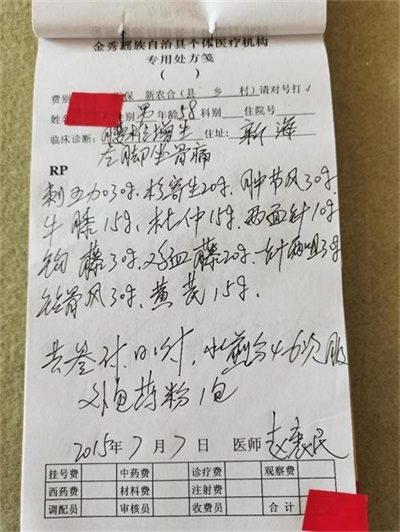 金秀瑶族自治县个体医疗机构
专用处方笺
( )
费别 医保 新农合(县 乡 村)请对号打√
姓名 男 年龄 58 科别 住院号
临床诊断: 腰椎增生 住址: 新海
左脚坐骨痛
RP
刺五加30g. 杉寄生20g. 肿节风30g.
牛膝15g. 杜仲15g. 两面针10g
钩藤30g. 鸡血藤20g. 一针两咀3g
钻骨风30g. 黄芪15g.
共叁付. 日1付. 水煎分4-6次服
外包药粉1包
2015年7月7日 医师 赵惠民
挂号费 中药费 诊疗费 观察费
西药费 材料费 注射费
调配员 审核员 收费员 合计